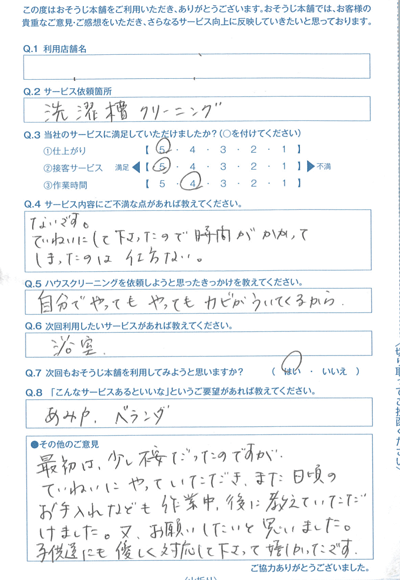 この度はおそうじ本舗をご利用いただき、ありがとうございます。おそうじ本舗では、お客様の
貴重なご意見・ご感想をいただき、さらなるサービス向上に反映していきたいと思っております。
Q.1 利用店舗名
Q.2 サービス依頼箇所
洗濯槽クリーニング
Q.3 当社のサービスに満足していただけましたか?(○を付けてください)
①仕上がり 【 5 ・ 4 ・ 3 ・ 2 ・ 1 】
②接客サービス 満足 ◀【 5 ・ 4 ・ 3 ・ 2 ・ 1 】▶ 不満
③作業時間 【 5 ・ 4 ・ 3 ・ 2 ・ 1 】
Q.4 サービス内容にご不満な点があれば教えてください。
ないです。
ていねいにして下さったので時間がかかって
しまったのは仕方ない。
Q.5 ハウスクリーニングを依頼しようと思ったきっかけを教えてください。
自分でやっても やっても カビがういてくるから.
Q.6 次回利用したいサービスがあれば教えてください。
浴室.
Q.7 次回もおそうじ本舗を利用してみようと思いますか? ( はい ・ いいえ )
Q.8 「こんなサービスあるといいな」というご要望があれば教えてください。
あみ戸. ベランダ
●その他のご意見
最初は、少し不安だったのですが.
ていねいにやっていただき、また日頃の
お手入れなども作業中、後に教えていただ
けました。又、お願いしたいと思いました。
子供達にも優しく対応して下さって嬉しかったです.
ご協力ありがとうございました。